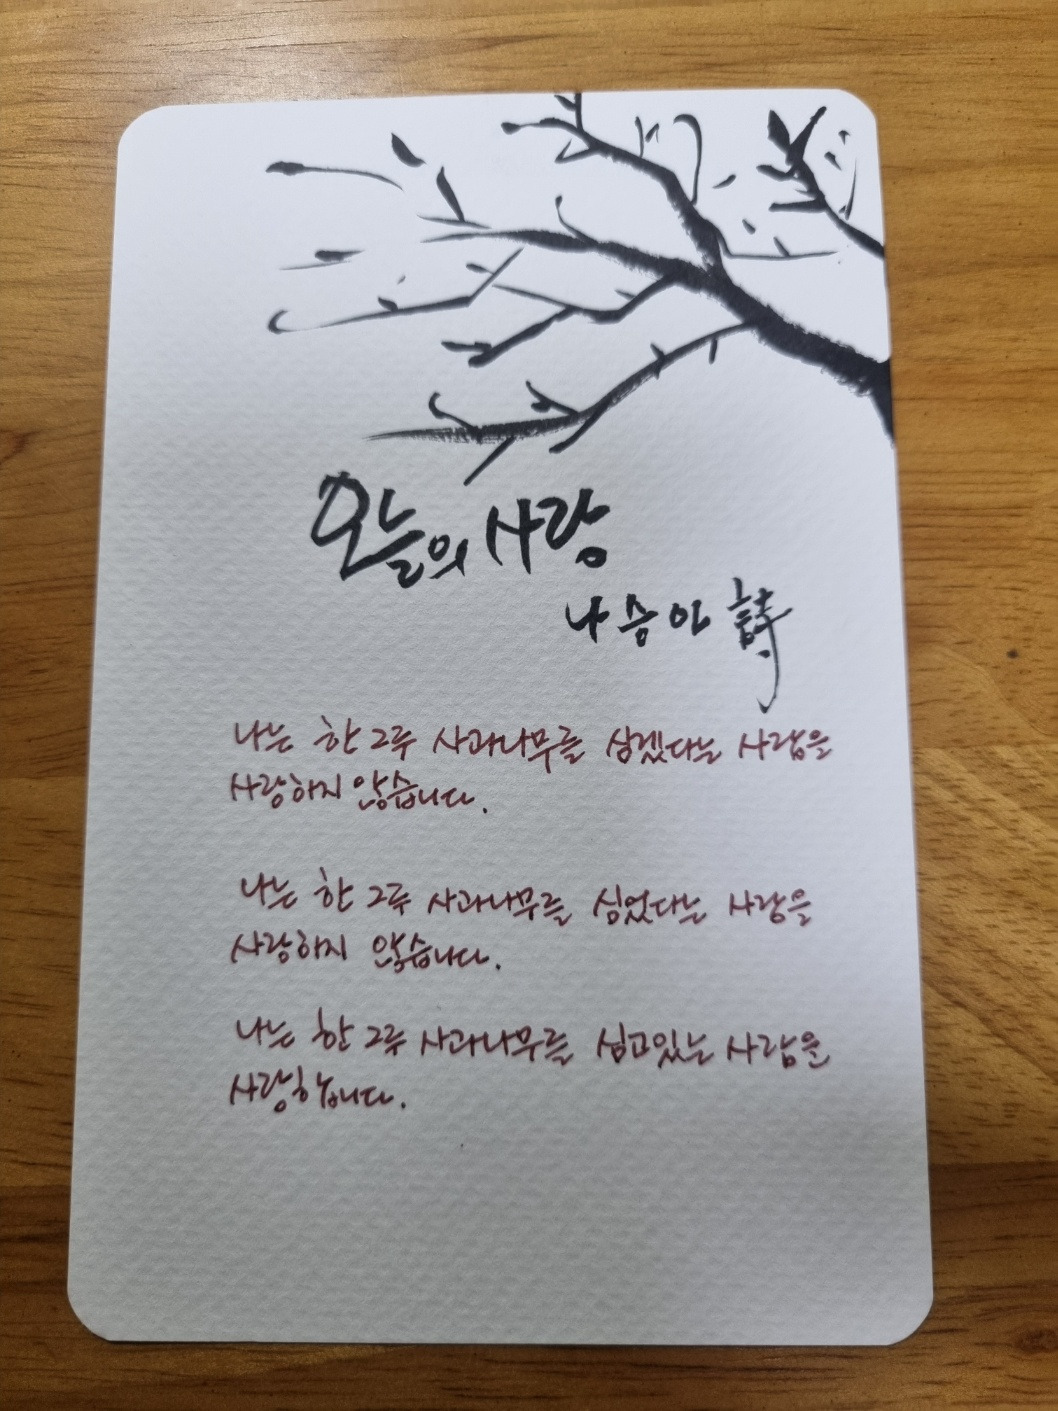 오늘의 사랑
나승아 詩
나는 한 그루 사과나무를 심겠다는 사람을
사랑하지 않습니다.
나는 한 그루 사과나무를 심었다는 사람을
사랑하지 않습니다.
나는 한 그루 사과나무를 심고있는 사람을
사랑합니다.